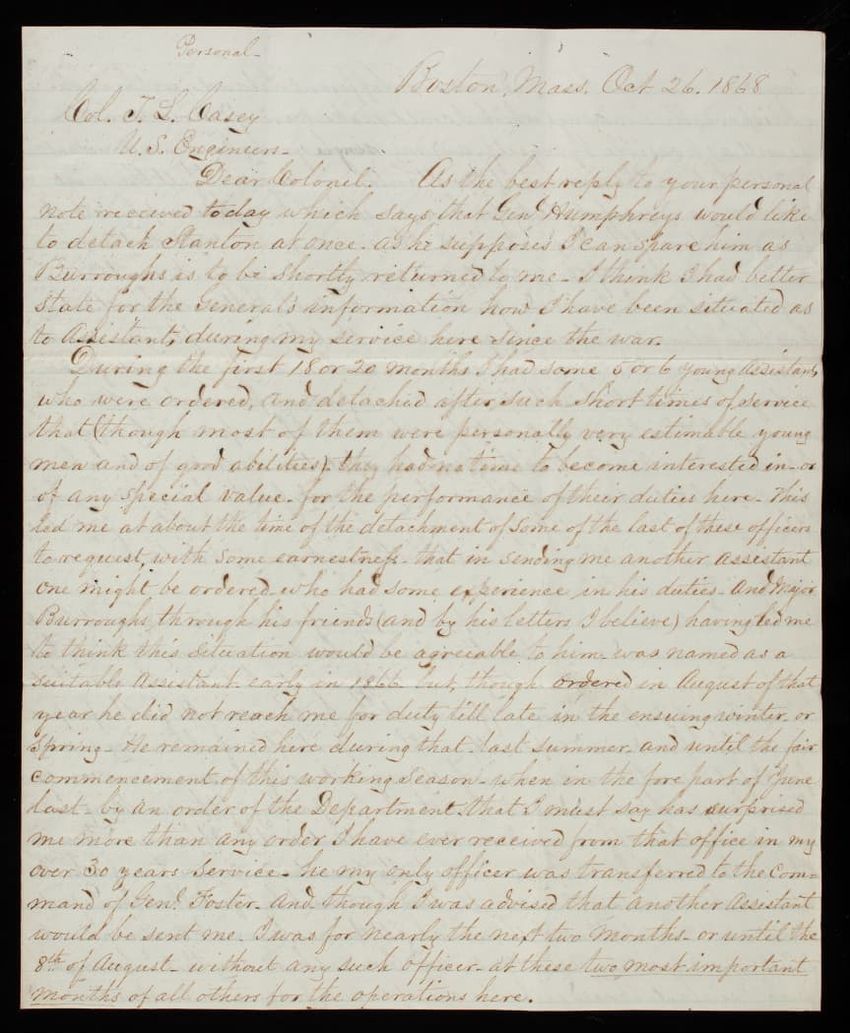 Personal-
Boston, Mass. Oct 26. 1868
Col. T. L. Casey
U.S. Engineers-
Dear Colonel. As the best reply to your personal
note received today which says that Genl Humphreys would like
to detach Stanton at once. as he supposes I can spare him as
Burroughs is to be shortly returned to me- I think I had better
state for the General's information how I have been situated as
to Assistants, during my service here since the war.
During the first 18 or 20 months I had some 5 or 6 young assistants
who were ordered, and detached after such short times of service
that (though most of them were personally very estimable young
men and of good abilities). they had no time to become interested in- or
of any special value- for the performance of their duties here- This
led me at about the time of the detachment of some of the last of these officers
to request, with some earnestness- that in sending me another assistant
one might be ordered who had some experience in his duties- And Major
Burroughs, through his friends (and by his letters I believe) having led me
to think this situation would be agreeable to him- was named as a
suitable Assistant early in 1866 but, though ordered in August of that
year he did not reach me for duty till late in the ensuing winter, or
spring- He remained here during that- last summer, and until the fair
commencement of this working season- when in the fore part of June
last- by an order of the Department that I must say has surprised
me more than any order I have ever received from that office in my
over 30 years service- he my only officer was transferred to the Com=
mand of Genl. Foster- And though I was advised that another Assistant
would be sent me- I was for nearly the next two months- or until the
8th of August- without any such officer- at these two most important
months of all others for the operations here.